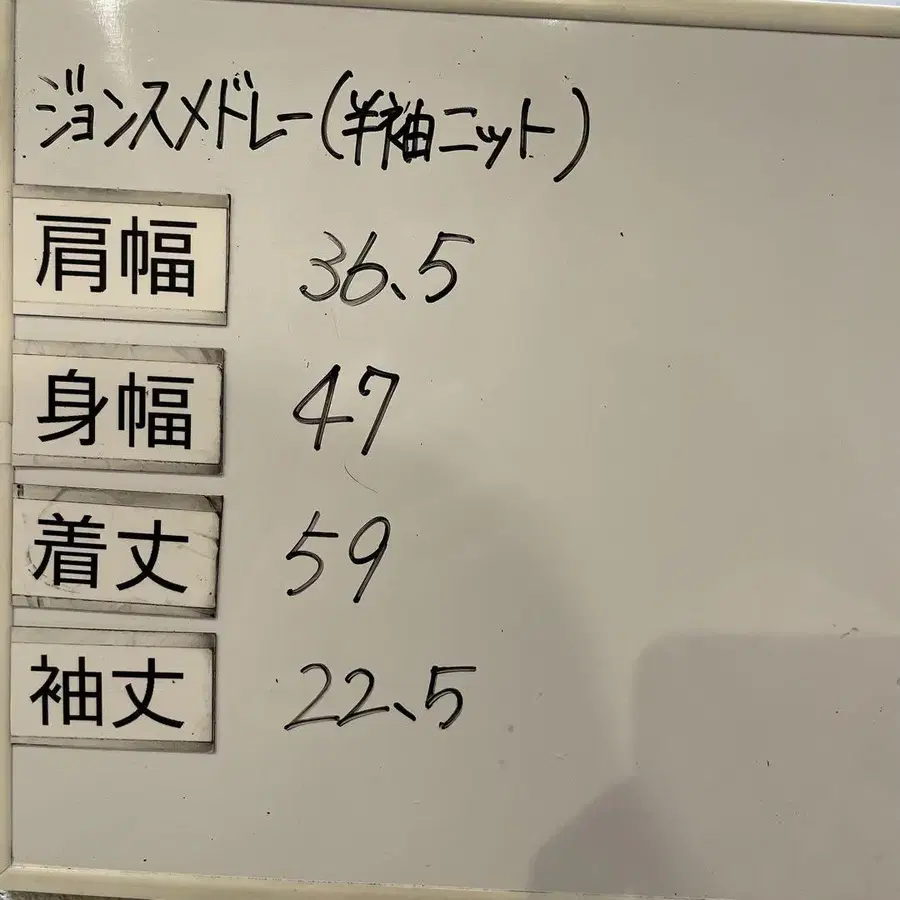 ジョンスメドレー(半袖ニット)
肩幅 36.5
身幅 47
着丈 59
袖丈 22.5